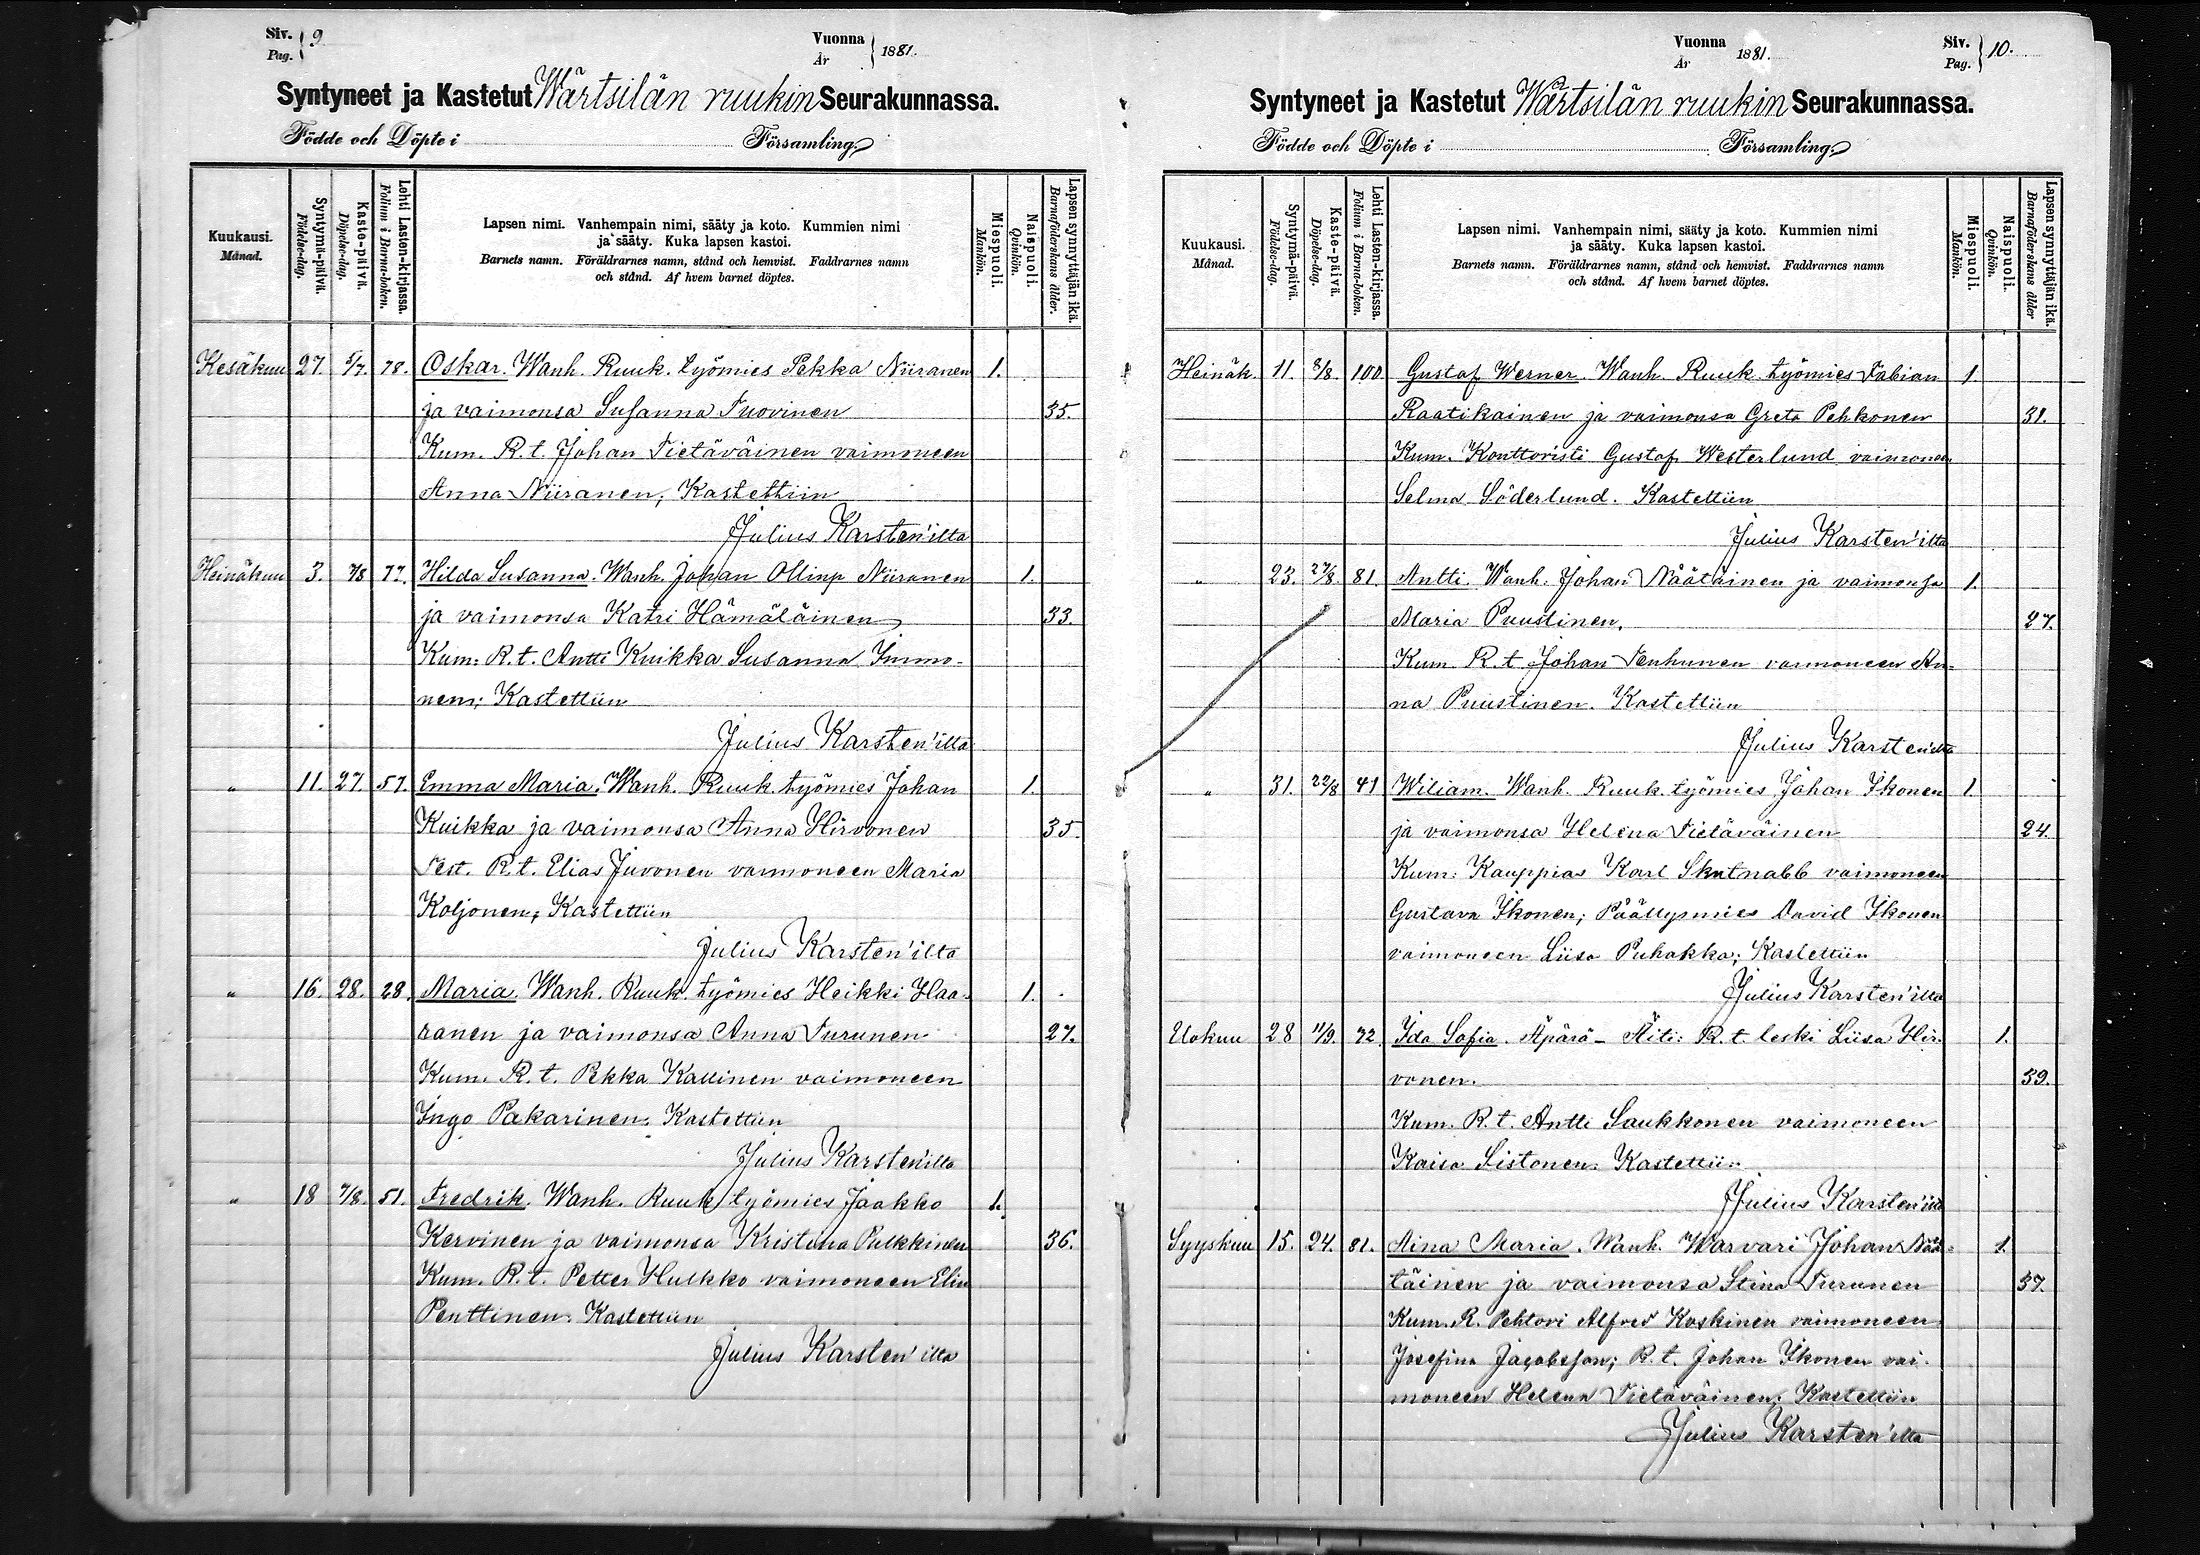 Siv. 9
Pag.
Vuonna 1881.
År
Syntyneet ja Kastetut Wärtsilän ruukin Seurakunnassa.
Födde och Döpte i Församling.
Kuukausi. Månad.
Syntymä-päivä. Födelse-dag.
Kaste-päivä. Döpelse-dag.
Lehti Lasten-kirjassa. Folium i Barna-boken.
Lapsen nimi. Vanhempain nimi, sääty ja koto. Kummien nimi
ja sääty. Kuka lapsen kastoi.
Barnets namn. Föräldrarnes namn, stånd och hemvist. Faddrarnes namn
och stånd. Af hvem barnet döptes.
Miespuoli. Mankön.
Naispuoli. Qvinkön.
Lapsen synnyttäjän ikä. Barnaföderskans ålder.
Kesäkuu 27. 5/7. 78. Oskar. Wanh. Ruuk. työmies Pekka Niiranen 1.
ja vaimonsa Susanna Tuovinen 35.
Kum. R. t. Johan Tietäväinen vaimoneen
Anna Niiranen; Kastettiin
Julius Karsten'ilta
Heinäkuu 3. 7/8 77. Hilda Susanna. Wanh. Johan Ollinp Niiranen 1.
ja vaimonsa Katri Hämäläinen 33.
Kum: R. t. Antti Kuikka Susanna Immo-
nen; Kastettiin
Julius Karsten'ilta
" 11. 27. 57. Emma Maria. Wanh. Ruuk. työmies Johan 1.
Kuikka ja vaimonsa Anna Hirvonen 35.
Test. R. t. Elias Juvonen vaimoneen Maria
Koljonen; Kastettiin
Julius Karsten'ilta
" 16. 28. 28. Maria. Wanh. Ruuk. työmies Heikki Haa- 1.
ranen ja vaimonsa Anna Turunen 27.
Kum. R. t. Pekka Kallinen vaimoneen
Ingo Pakarinen. Kastettiin
Julius Karsten'ilta
" 18 7/8. 51. Fredrik. Wanh. Ruuk työmies Jaakko 1.
Kervinen ja vaimonsa Kristina Pulkkinen 36.
Kum. R. t. Petter Hulkko vaimoneen Elin
Penttinen. Kastettiin
Julius Karsten'ilta
Vuonna 1881.
År
Siv. 10.
Pag.
Syntyneet ja Kastetut Wärtsilän ruukin Seurakunnassa.
Födde och Döpte i Församling.
Kuukausi. Månad.
Syntymä-päivä. Födelse-dag.
Kaste-päivä. Döpelse-dag.
Lehti Lasten-kirjassa. Folium i Barna-boken.
Lapsen nimi. Vanhempain nimi, sääty ja koto. Kummien nimi
ja sääty. Kuka lapsen kastoi.
Barnets namn. Föräldrarnes namn, stånd och hemvist. Faddrarnes namn
och stånd. Af hvem barnet döptes.
Miespuoli. Mankön.
Naispuoli. Qvinkön.
Lapsen synnyttäjän ikä. Barnaföderskans ålder
Heinäk. 11. 8/8. 100 Gustaf Werner. Wanh. Ruuk. työmies Fabian 1.
Raatikainen ja vaimonsa Greta Pehkonen 31.
Kum. Konttoristi Gustaf Westerlund vaimoneen
Selma Söderlund. Kastettiin
Julius Karsten'ilta
" 23. 27/8. 81. Antti. Wanh. Johan Näätäinen ja vaimonsa 1.
Maria Puustinen. 27.
Kum R. t Johan Tenhunen vaimoneen An-
na Puustinen. Kastettiin
Julius Karsten'ilta
" 31. 22/8 41 Wiliam. Wanh. Ruuk. työmies Johan Ikonen 1.
ja vaimonsa Helena Tietäväinen 24.
Kum: Kauppias Karl Skutnabb vaimoneen
Gustava Ikonen; Päällysmies David Ikonen
vaimoneen Liisa Puhakka; Kastettiin
Julius Karsten'ilta
Elokuu 28 11/9. 72. Ida Sofia. Äpärä - Äiti: R. t. leski Liisa Hir- 1.
vonen. 39.
Kum. R. t. Antti Saukkonen vaimoneen
Kaisa Sistonen. Kastettiin
Julius Karsten'ilta
Syyskuu 15. 24. 81. Aina Maria. Wanh. Warvari Johan Nää- 1.
täinen ja vaimonsa Stina Turunen 37.
Kum. R. Pehtori Alfred Koskinen vaimoneen
Josefina Jacobsson; R. t. Johan Ikonen vai-
moneen Helena Tietäväinen; Kastettiin
Julius Karsten'ilta